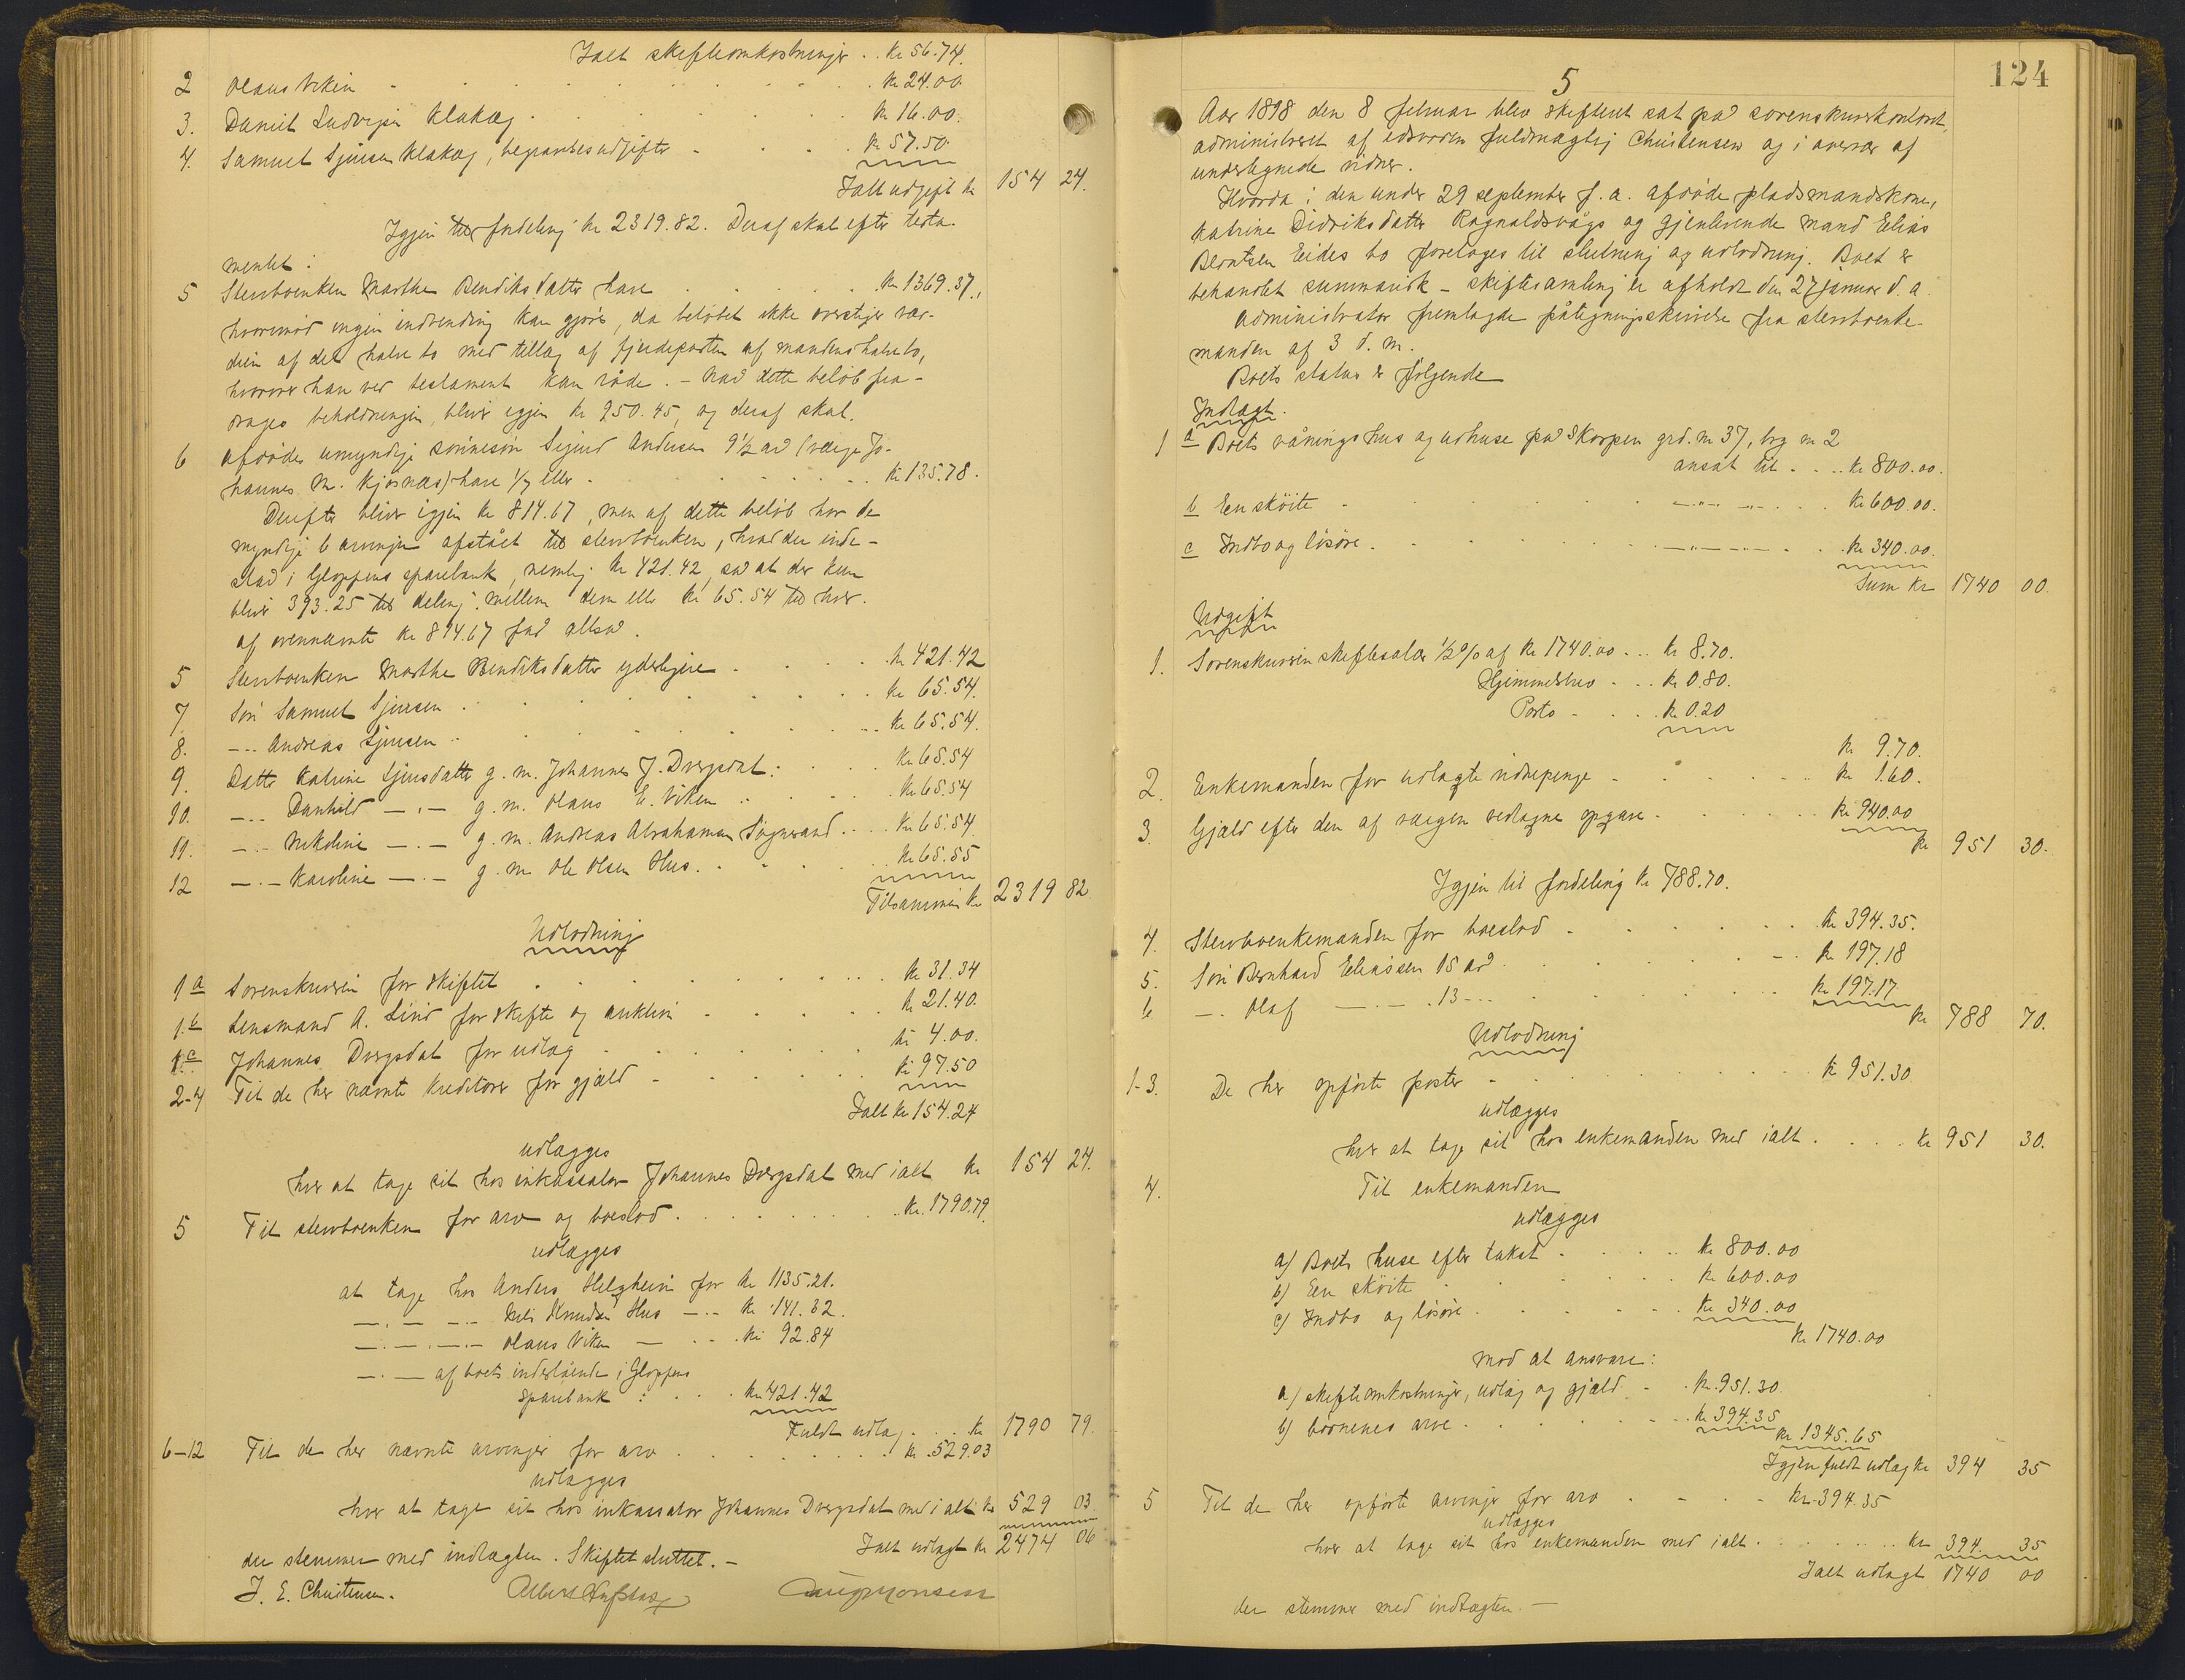 Ialt skifteomkostninger . . kr 56.74.
2 Olaus Viken - . . . . . . . . kr 24.00.
3. Daniel Ludvigsen Klakeg . . . . . . . kr 16.00.
4. Samuel Sjursen Klakeg, begravelsesudgifter - . . . kr 57.50.
Ialt udgift kr 154 24.
Igjen til fordeling kr 2319.82. Deraf skal efter testa-
mentet :
5 Stervboenken Marthe Bendiksdatter have . . . . . kr 1369.37.,
hvorimod ingen indvending kan gjøres, da beløbet ikke overstiger vær-
dien af det halve bo med tillæg af fjerdeparten af mandens halvebo,
hvorover han ved testament kan råde. - Naar dette beløb fra-
drages beholdningen, bliver igjen kr 950.45, og deraf skal.
6 afdødes umyndige sønnesøn Sigurd Andersen 9 1/2 aar (værge Jo-
hannes M. Kjøsnæs) have 1/7 eller - . . . . . . kr 135.78.
Derefter bliver igjen kr 814.67, men af dette beløb har de
myndige 6 arvinger afstået til stervboenken, hvad der inde-
stod i Gloppens sparebank, nemlig kr 421.42, saa at der kun
bliver 393.25 til deling mellem dem eller kr 65.54 til hver.
af ovennævnte kr 814.67 faar altsaa.
5 Stervboenken Marthe Bendiksdatter yderligere . . . . kr 421.42
7. Søn Samuel Sjursen . . . . . . . kr 65.54.
8. -.- Andreas Sjursen . . . . . . . kr 65.54.
9. Datter Katrine Sjursdatter g. m. Johannes J. Dvergsdal . . . kr 65.54
10. -.- Danhild -.- g. m. Olaus E. Viken . . . . kr 65.54
11. -.- Nikoline -.- g. m. Andreas Abrahamsen Søgnesand . . . kr 65.54.
12 -.- Karoline -.- g. m. Ole Olsen Hus. . . . . kr 65.55
Tilsammen kr 2319 82.
Udlodning
1 a Sorenskriveren for skiftet . . . . . . . kr 31.34
1. b Lensmand A. Lind for skifte og auktion . . . . . kr 21.40.
1. c Johannes Dvergsdal for udlæg . . . . . . kr 4.00.
2-4 Til de her nævnte kreditorer for gjæld - . . . . . kr 97.50
Ialt kr 154.24
udlægges
hver at tage sit hos inkassator Johannes Dvergsdal med ialt kr 154 24.
5 Til stervboenken for arv og boeslod . . . . . . kr. 1790.79.
udlægges
at tage hos Anders Helgheim for kr 1135.21.
-.- -.- Nils Knudsen Hus -.- kr 141.32.
-.- -.- Olaus Viken - . . kr 92.84
-.- af boets indestående i Gloppens
sparebank : . . . kr 421.42
Fuldt udlag . . . kr 1790 79.
6-12 Til de her nævnte arvinger for arv . . . . . . . kr 529.03
udlægges
hver at tage sit hos inkassator Johannes Dvergsdal med ialt kr 529 03.
Ialt udlagt kr 2474 06
der stemmer med indtægten. Skiftet sluttet. -
J. E. Christensen.
124
5
Aar 1898 den 8 februar blev skifteret sat paa sorenskriverkontoret,
administreret af edsvoren fuldmægtig Christensen og i overvær af
undertegnede vidner.
Hvorda i den under 29 september f. a. afdøde pladsmandskone,
Katrine Didriksdatter Ragnaldsvågs og gjenlevende mand Elias
Berntsen Eides bo foretages til slutning og udlodning. Boet er
behandlet summarisk - skiftesamling er afholdt den 27 januar d. a.
Administrator fremlagde påtegningsskrivelse fra stervboenke-
manden af 3 d. m.
Boets status er følgende
Indtægt.
1 a Boets våningshus og udhuse paa Skorpen grd. nr 37, brg nr 2
ansat til . . . . kr 800.00.
b Een skøite - . . . . . -.,- -.- . . . kr 600.00.
c Indbo og løsøre . . . . . . -.,- -.- . . kr 340.00.
Sum kr 1740 00.
Udgift
1. Sorenskriveren skiftesalær 1/2 % af kr 1740.00 . . . kr 8.70.
Hjemmelsbrev - . . kr 0.80.
Porto - . . . kr 0.20
kr 9.70.
2. Enkemanden for udlagte vidnepenge - . . . . kr 1.60.
3. Gjæld efter den af værgen vedtagne opgave . . . . . kr 940.00
kr 951 30.
Igjen til fordeling kr 788.70.
4. Stervboenkemanden for boeslod . . . . . . . kr 394.35.
5. Søn Bernhard Eliassen 15 aar . . . . . . - . kr 197.18
6. -.- Olaf -.- 13 -.- . . . . . . kr 197.17
kr 788 70.
Udlodning
1-3. De her opførte poster - . . . . . . . kr 951.30
udlægges
hver at tage sit hos enkemanden med ialt . . . . kr 951 30.
4. Til enkemanden
udlægges
a) Boets huse efter takst - . . . . kr 800.00
b) Een skøite . . . . . . kr 600.00
c) Indbo og løsøre . . . . . . kr 340.00
kr 1740.00
mod at ansvare :
a) skifteomkostninger, udlæg og gjæld - . kr 951.30
b) børnenes arv . . . . . . . kr 394.35
kr 1345.65
Igjen fuldt udlæg kr 394 35
5 Til de her opførte arvinger for arv . - . - kr 394.35
udlægges
hver at tage sit hos enkemanden med ialt . . . . . . . kr 394. 35
Ialt udlagt 1740 00
der stemmer med indtægten. -